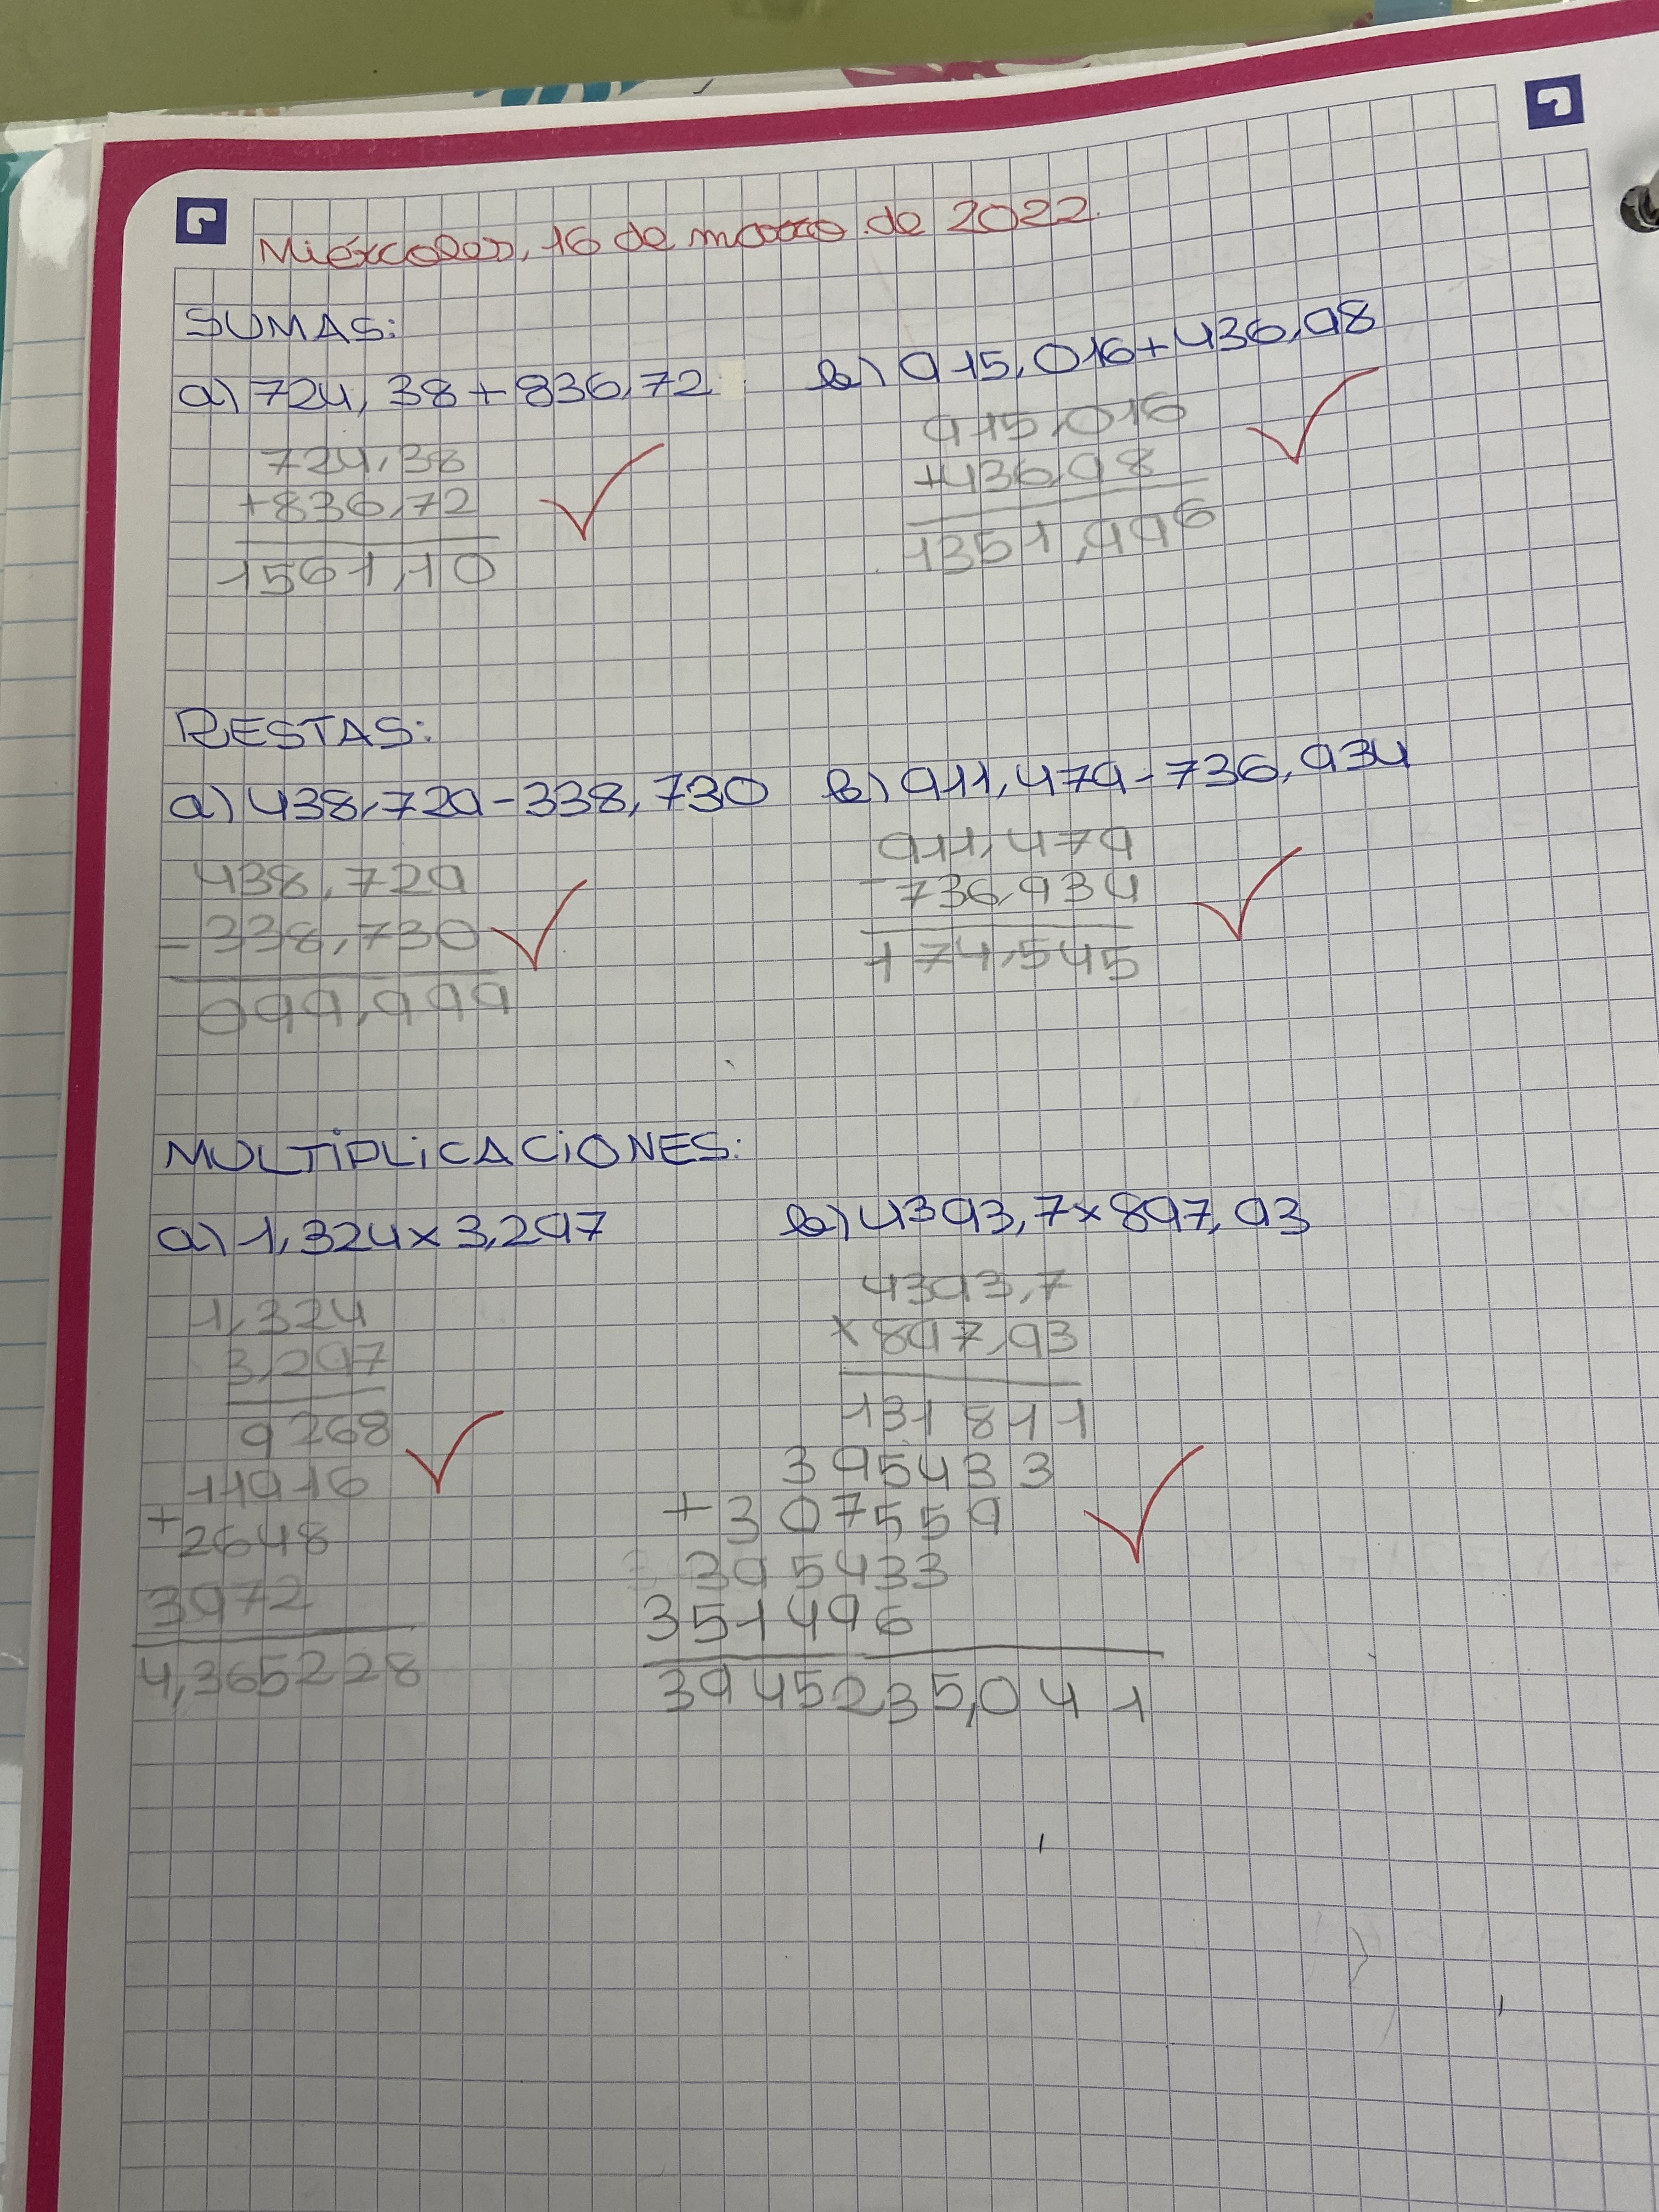 Miércoles, 16 de marzo de 2022.
SUMAS:
a) 724,38+836,72 b) 915,016+436,98
724,38
+836,72
1561,10
915,016
+436,98
1351,996
RESTAS:
a) 438,729-338,730 b) 911,479-736,934
438,729
-338,730
099,999
911,479
-736,934
174,545
MULTIPLICACIONES:
a) 1,324x3,297 b) 4393,7x897,93
1,324
3,297
9268
11916
+2648
3972
4,365228
4393,7
x897,93
131811
395433
+307559
395433
351496
3945235,041